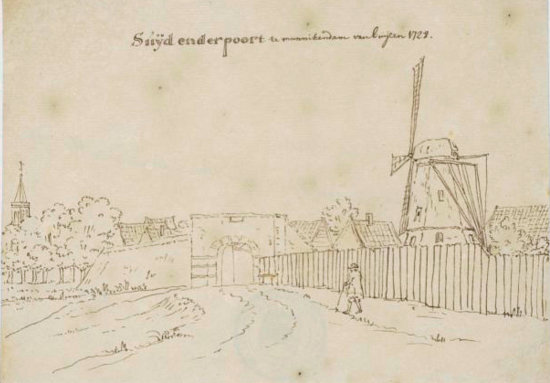 Suÿd enderpoort te munnikendam van buijten 1728.